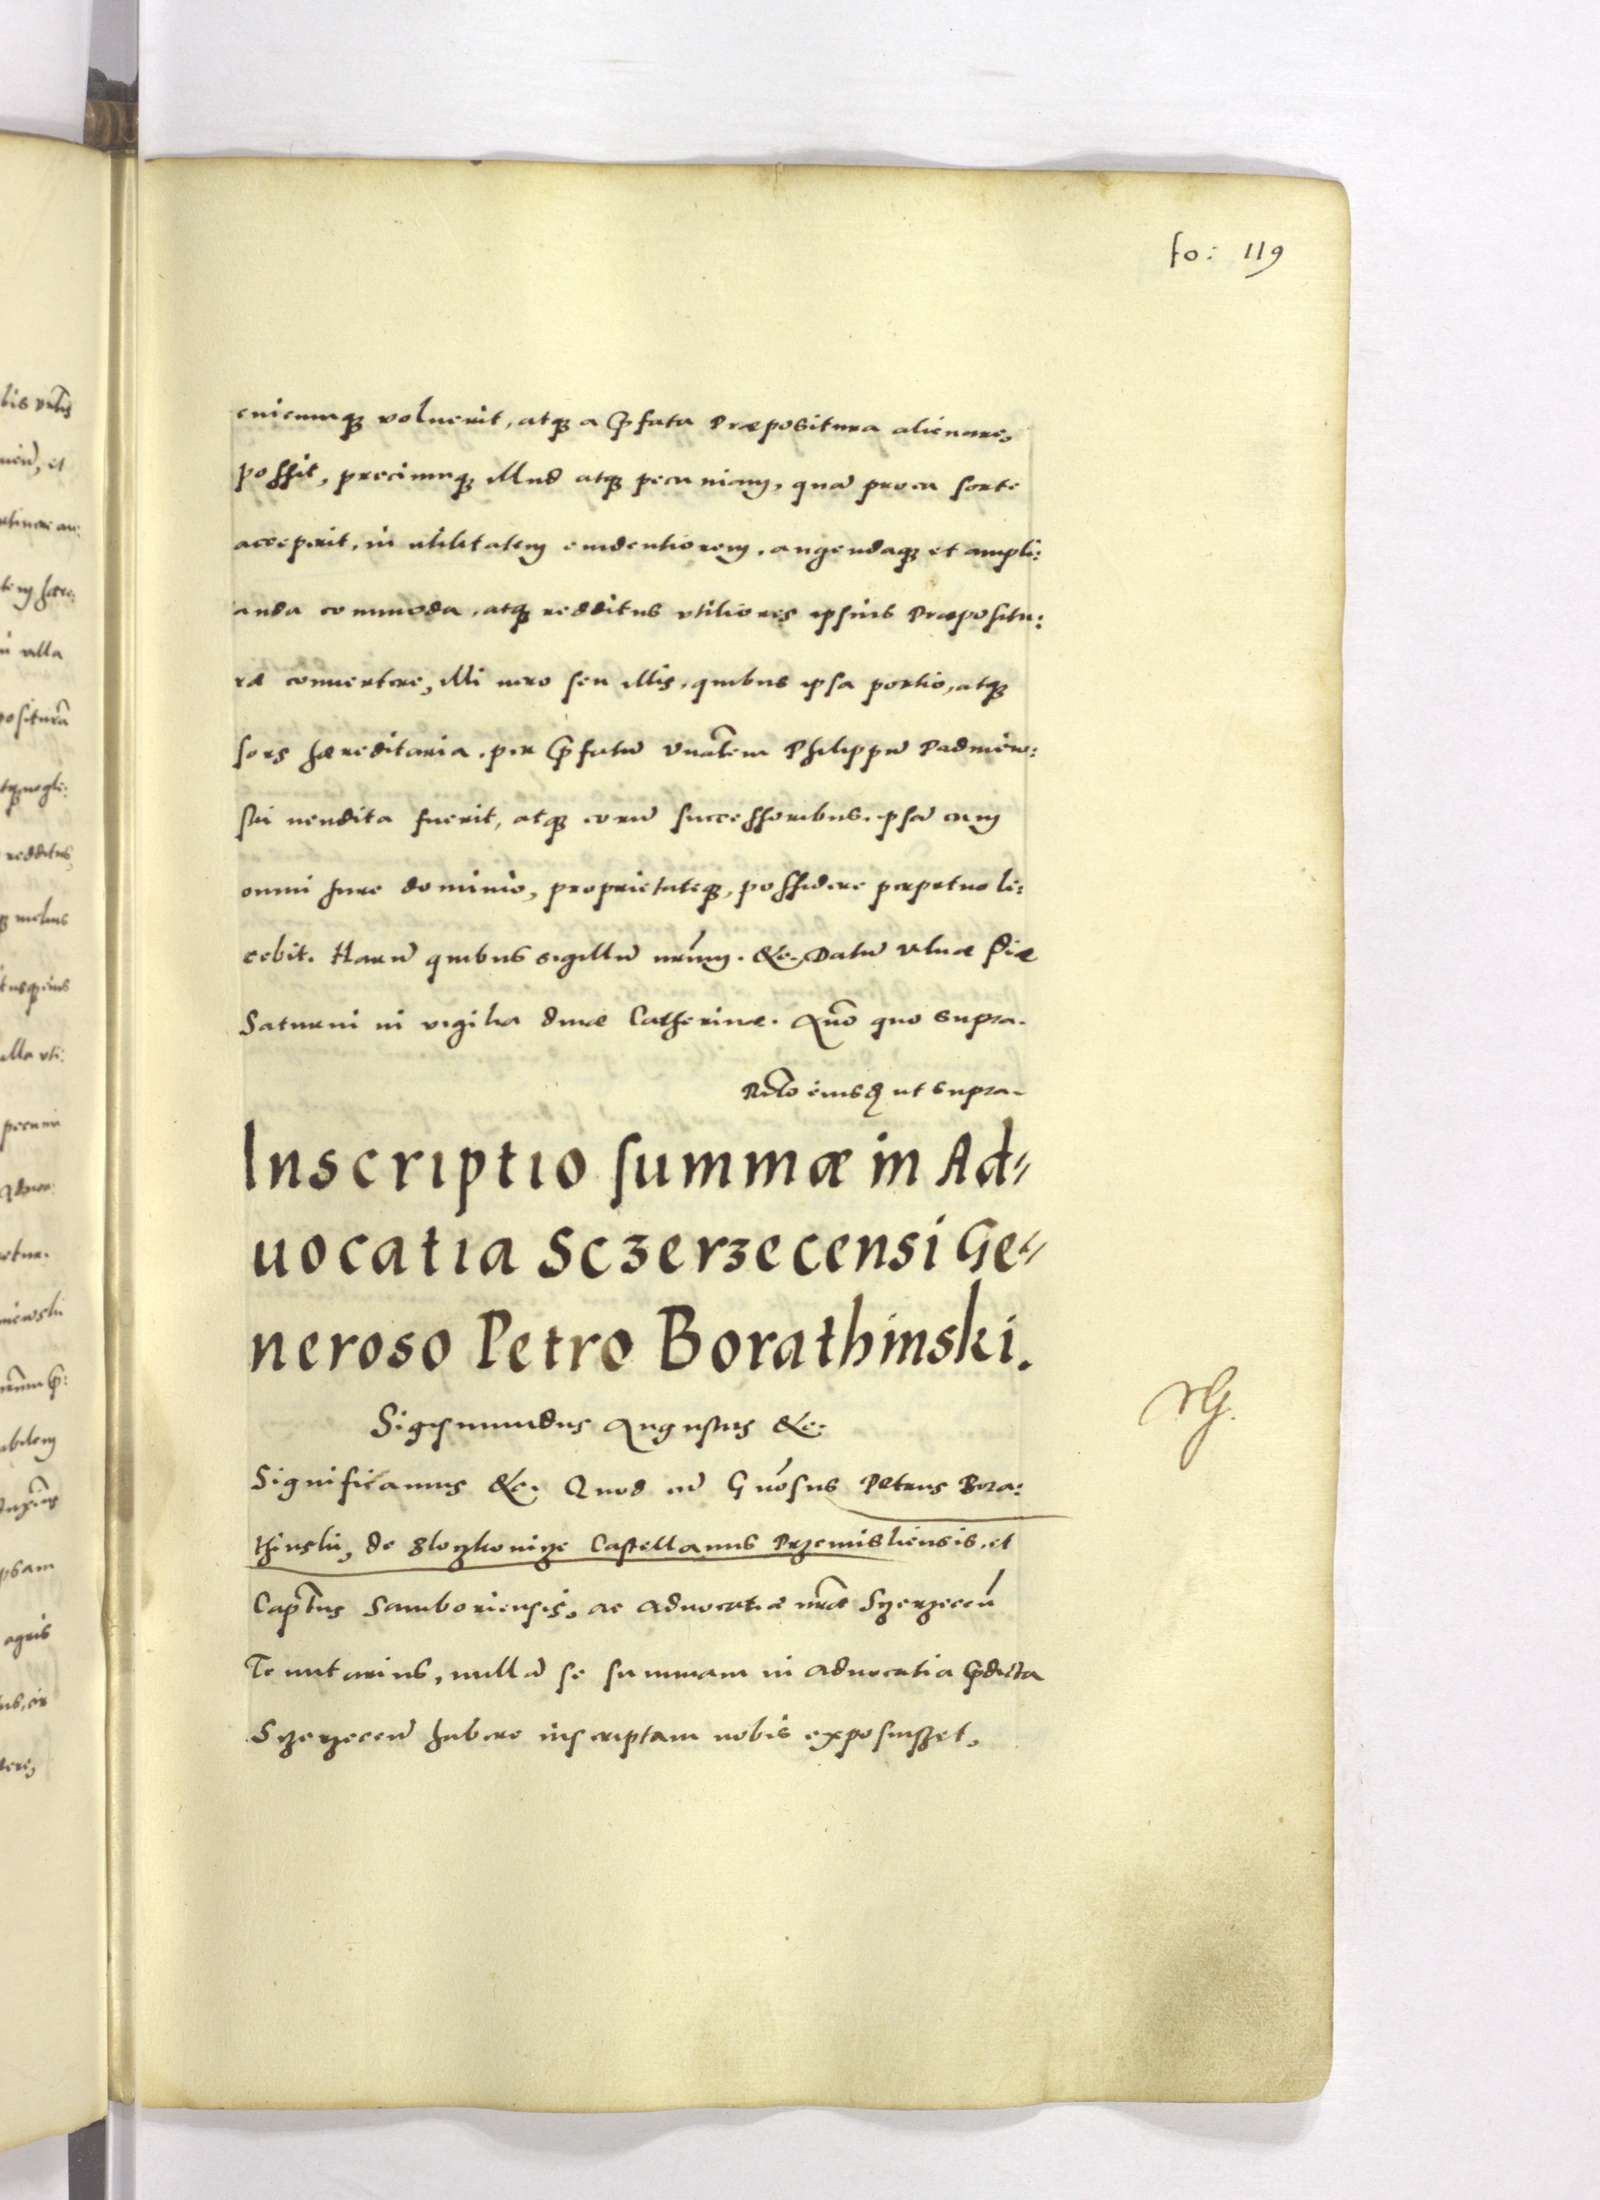 fo: 119
cuicumq3 voluerit, atq3 a p̃fata Præpositura alienare,
possit, preciumq3 illud atq3 pecuniam, quã pro ea sorte
acceperit, in utilitatem euidentiorem, augendaq3 et ampli:
anda commoda, atq3 redditus vtiliores ipsius Præpositu:
ræ conuertere, illi uero seu illis, quibus ipsa portio, atq3
sors hæreditaria, per p̃fatũ Vnãlem Philippũ Padniew:
ski uendita fuerit, atq3 eorũ successoribus, ipsã cum
omni Jure dominio, proprietateq3, possidere perpetuo li:
cebit. Harũ quibus sigillũ nr̃um. &c. Datũ Vilnæ Die
Saturni in vigilia diuæ Catherinæ. Ann̄o quo supra.
Rĩto eiusd̃ ut supra.
Inscriptio summæ in Ad⸗
uocatia Sczerzecensi Ge⸗
neroso Petro Borathinski.
Sigismundus Augustus &c.
RG.
Significamus &c. Quod cũ Gñosus Petrus Bora:
thinski, de Zloczkowicze Castellanus Przemisliensis, et
Cap̃tus Samboriensis, ac Aduocatiæ nr̃æ Sczerzeceñ
Tenutarius, nullã se summam in Aduocatia p̃dicta
Sczerzeceñ habere inscriptam nobis exposuisset,